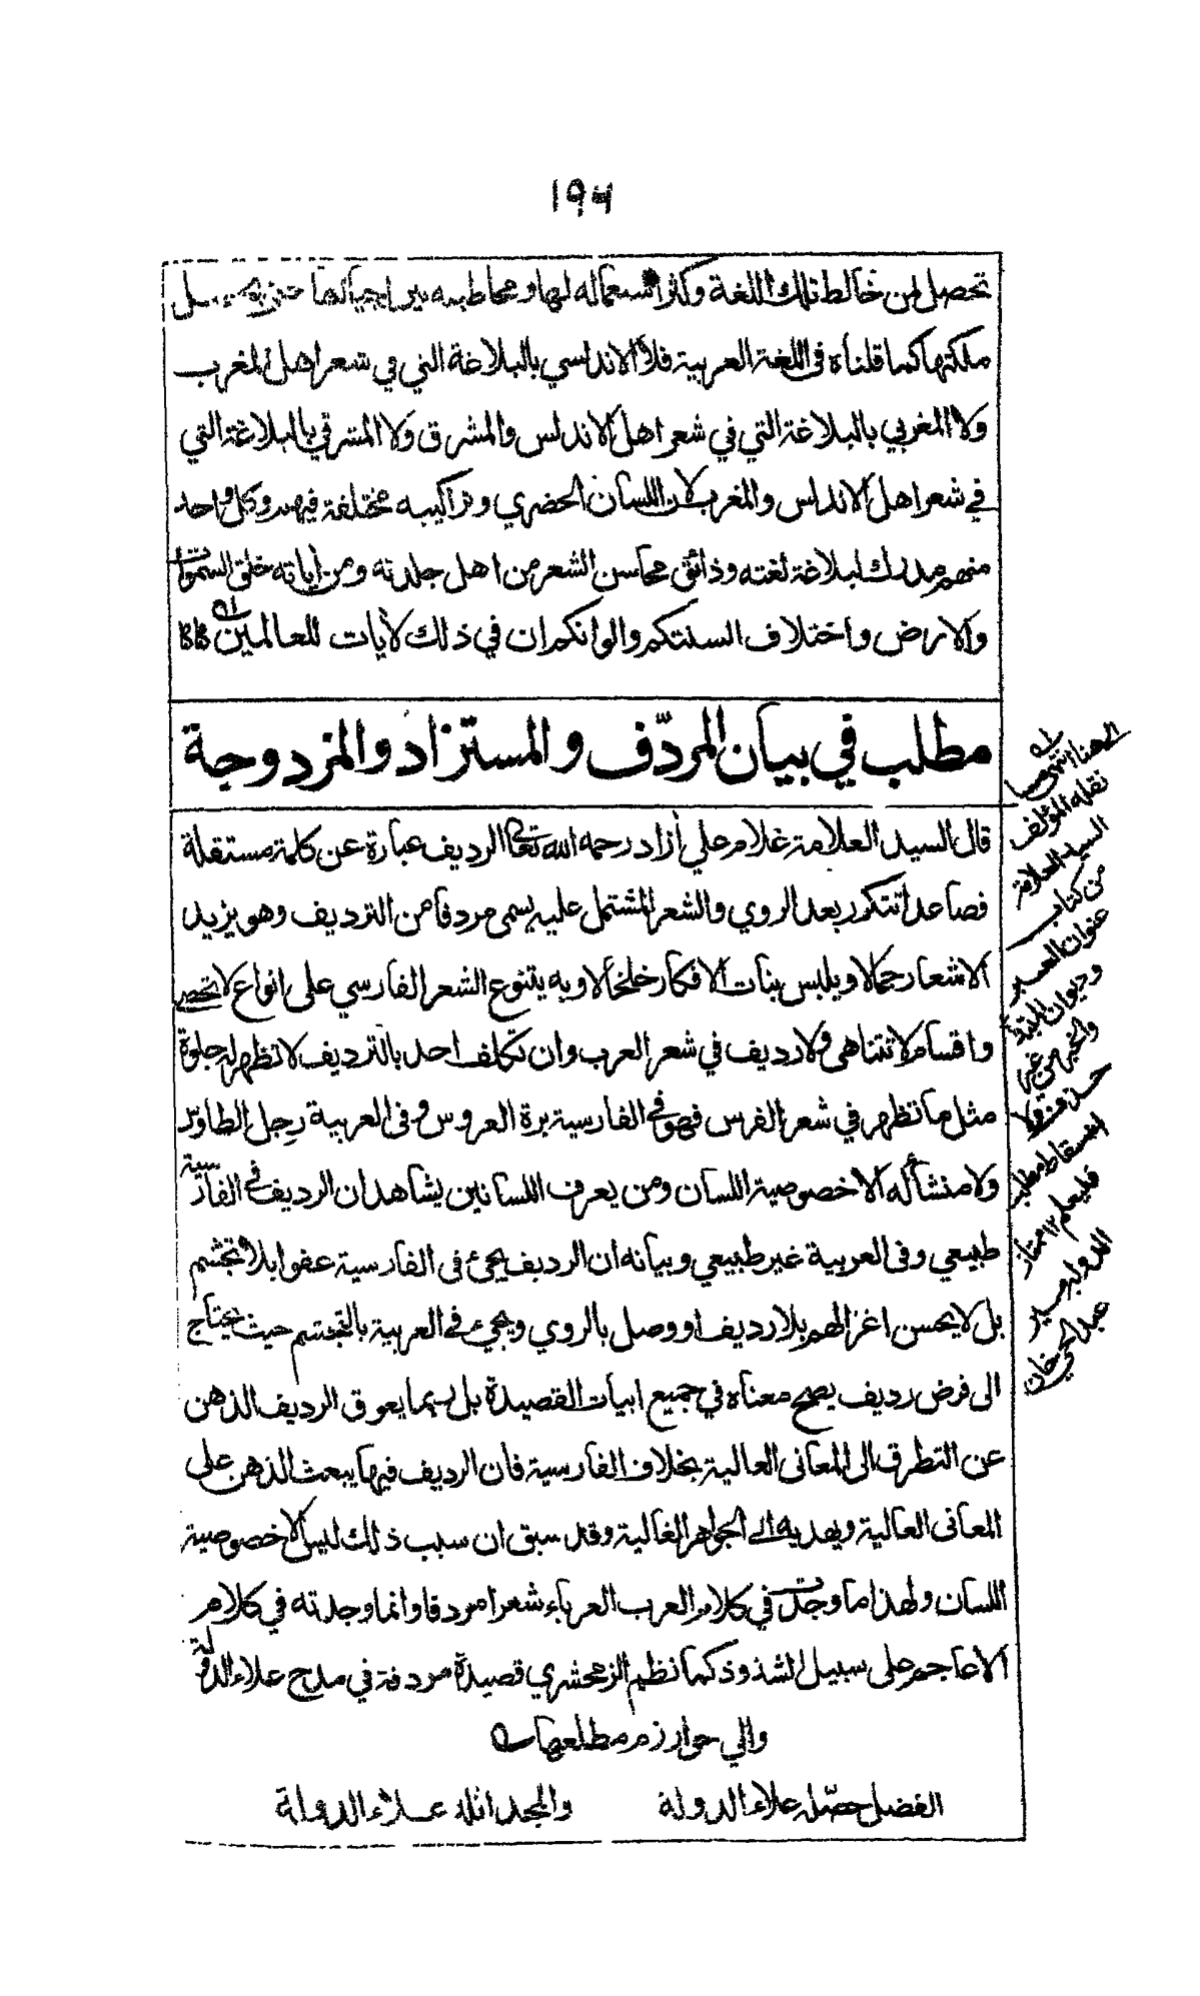 ۱۹۴
تحصل لمن خالط تلك اللغة وكثر استعماله لها ومخاطبته بين اجيالها حتى يحصل
ملكتها كما قلناه فى اللغة العربية فلا الاندلسي بالبلاغة التي في شعر اهل المغرب
ولا المغربي بالبلاغة التي في شعر اهل الاندلس والمشرق ولا المشرقي بالبلاغة التي
في شعر اهل الاندلس والمغرب لان اللسان الحضري وتراكيبه مختلفة فيهم وكل واحد
منهم مدرك لبلاغة لغته وذائق محاسن الشعر من اهل جلدته ومن اياته خلق السموات
والارض واختلاف السنتكم والوانكم ان في ذلك لآيات للعالمين
مطلب في بيان المردّف والمستزاد والمزدوجة
قال السيد العلامة غلام علي أزاد رحمه الله تعالى الرديف عبارة عن كلمة مستقلة
فصاعدا تتكرر بعد الروي والشعر المشتمل عليه يسمى مردفا من الترديف وهو يزيد
الاشعار جمالا ويلبس بنات الافكار خلخالا وبه يتنوع الشعر الفارسي على انواع لا تحصر
واقسام لا تتناهى ولا رديف في شعر العرب وان تكلف احد بالترديف لا تظهر له جلوة
مثل ما تظهر في شعر الفرس فهو في الفارسية برة العروس وفى العربية رجل الطاوس
ولا منشأ له الا خصوصية اللسان ومن يعرف اللسانين يشاهد ان الرديف في الفارسية
طبيعي وفى العربية غير طبيعي وبيانه ان الرديف يجئ فى الفارسية عفوا بلا تجشم
بل لا يحسن اغزالهم بلا رديف او وصل بالروي ويجئ في العربية بالتجشم حيث يحتاج
الى فرض رديف يصح معناه في جميع ابيات القصيدة بل ربما يعوق الرديف الذهن
عن التطرق الى المعانى العالية بخلاف الفارسية فان الرديف فيها يبعث الذهن على
المعانى العالية ويهديه الى الجواهر الغالية وقد سبق ان سبب ذلك ليس الا خصوصية
اللسان ولهذا ما وجدت في كلام العرب العرباء شعرا مردفا وانما وجدته في كلام
الاعاجم على سبيل الشذوذ كما نظم الزمخشري قصيدة مردفة في مدح علاء الدولة
والي خوارزم مطلعها
الفضل حصّله علاء الدولة والمجد اثله علاء الدولة
الى هنا انتهى ما
نقله المؤلف
السيد العلامة
من كتاب
عنوان العبر
وديوان المبتدأ
والخبر من غير
اسقاط مطلب
فليعلم ۱۲ ممتاز
الدوله مير
عبد الحي خان